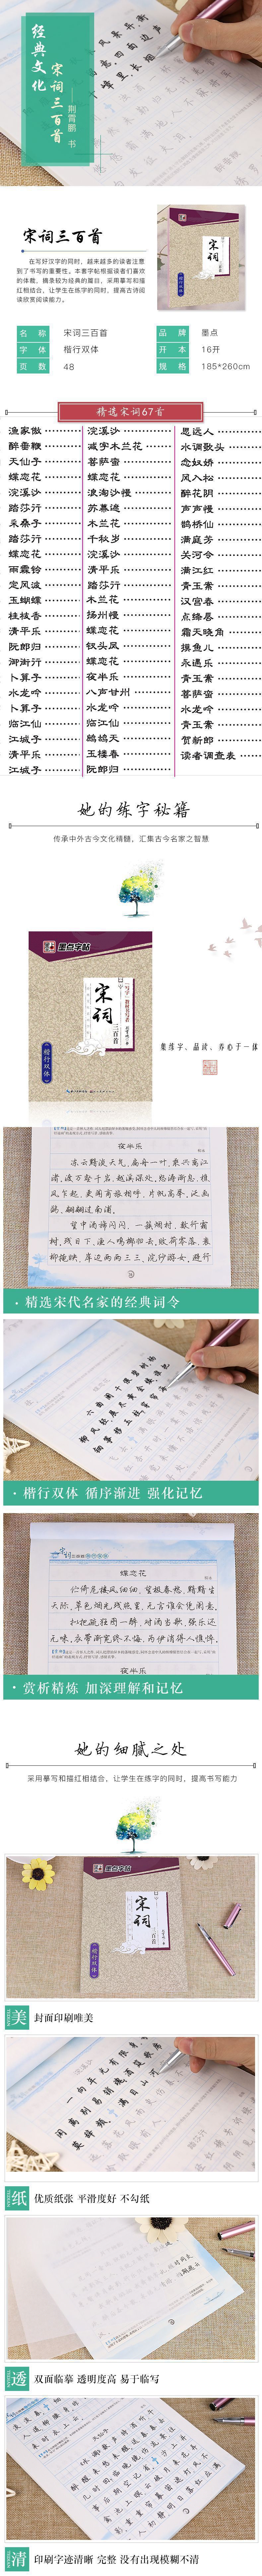 经典文化
宋词三百首
荆霄鹏 书
宋词三百首
在写好汉字的同时，越来越多的读者注意
到了书写的重要性。本套字帖根据读者们喜欢
的体裁，摘录较为经典的篇目，采用摹写和描
红相结合，让学生在练字的同时，提高古诗阅
读欣赏阅读能力。
墨点
宋词
三百首
楷行双体
名 称 宋词三百首
品 牌 墨点
字 体 楷行双体
开 本 16开
页 数 48
规 格 185*260cm
精选宋词67首
渔家傲
醉垂鞭
天仙子
蝶恋花
浣溪沙
踏莎行
采桑子
踏莎行
蝶恋花
雨霖铃
定风波
玉蝴蝶
桂枝香
清平乐
阮郎归
御街行
卜算子
水龙吟
卜算子
临江仙
江城子
清平乐
江城子
浣溪沙
减字木兰花
菩萨蛮
蝶恋花
浪淘沙慢
苏幕遮
木兰花
千秋岁
浣溪沙
清平乐
踏莎行
木兰花
扬州慢
蝶恋花
钗头凤
蝶恋花
夜半乐
八声甘州
水龙吟
临江仙
鹧鸪天
玉楼春
阮郎归
思远人
水调歌头
念奴娇
风入松
醉花阴
声声慢
鹊桥仙
满庭芳
关河令
满江红
青玉案
汉宫春
点绛唇
霜天晓角
摸鱼儿
永遇乐
青玉案
菩萨蛮
水龙吟
青玉案
贺新郎
读者调查表
她的练字秘籍
传承中外古今文化精髓，汇集古今名家之智慧
墨点字帖
宋词
三百首
楷行双体
集练字、品读、养心于一体
夜半乐
冻云黯淡天气，扁舟一叶，乘兴离江
渚。渡万壑千岩，越溪深处。怒涛渐息，樵
风乍起，更闻商旅相呼。片帆高举。泛画
鹢、翩翩过南浦。
望中酒旆闪闪，一簇烟村，数行霜
树。残日下，渔人鸣榔归去。败荷零落，衰
杨掩映，岸边两两三三，浣纱游女。避行
· 精选宋代名家的经典词令
· 楷行双体 循序渐进 强化记忆
蝶恋花
伫倚危楼风细细，望极春愁，黯黯生
天际。草色烟光残照里，无言谁会凭阑意。
拟把疏狂图一醉，对酒当歌，强乐还
无味。衣带渐宽终不悔，为伊消得人憔悴。
夜半乐
· 赏析精炼 加深理解和记忆
她的细腻之处
采用摹写和描红相结合，让学生在练字的同时，提高书写能力
墨点字帖
宋词
三百首
楷行双体
美 封面印刷唯美
一向年光有限身
闲离别易销魂
莫辞频
满目山河
纸 优质纸张 平滑度好 不勾纸
透 双面临摹 透明度高 易于临写
清 印刷字迹清晰 完整 没有出现模糊不清